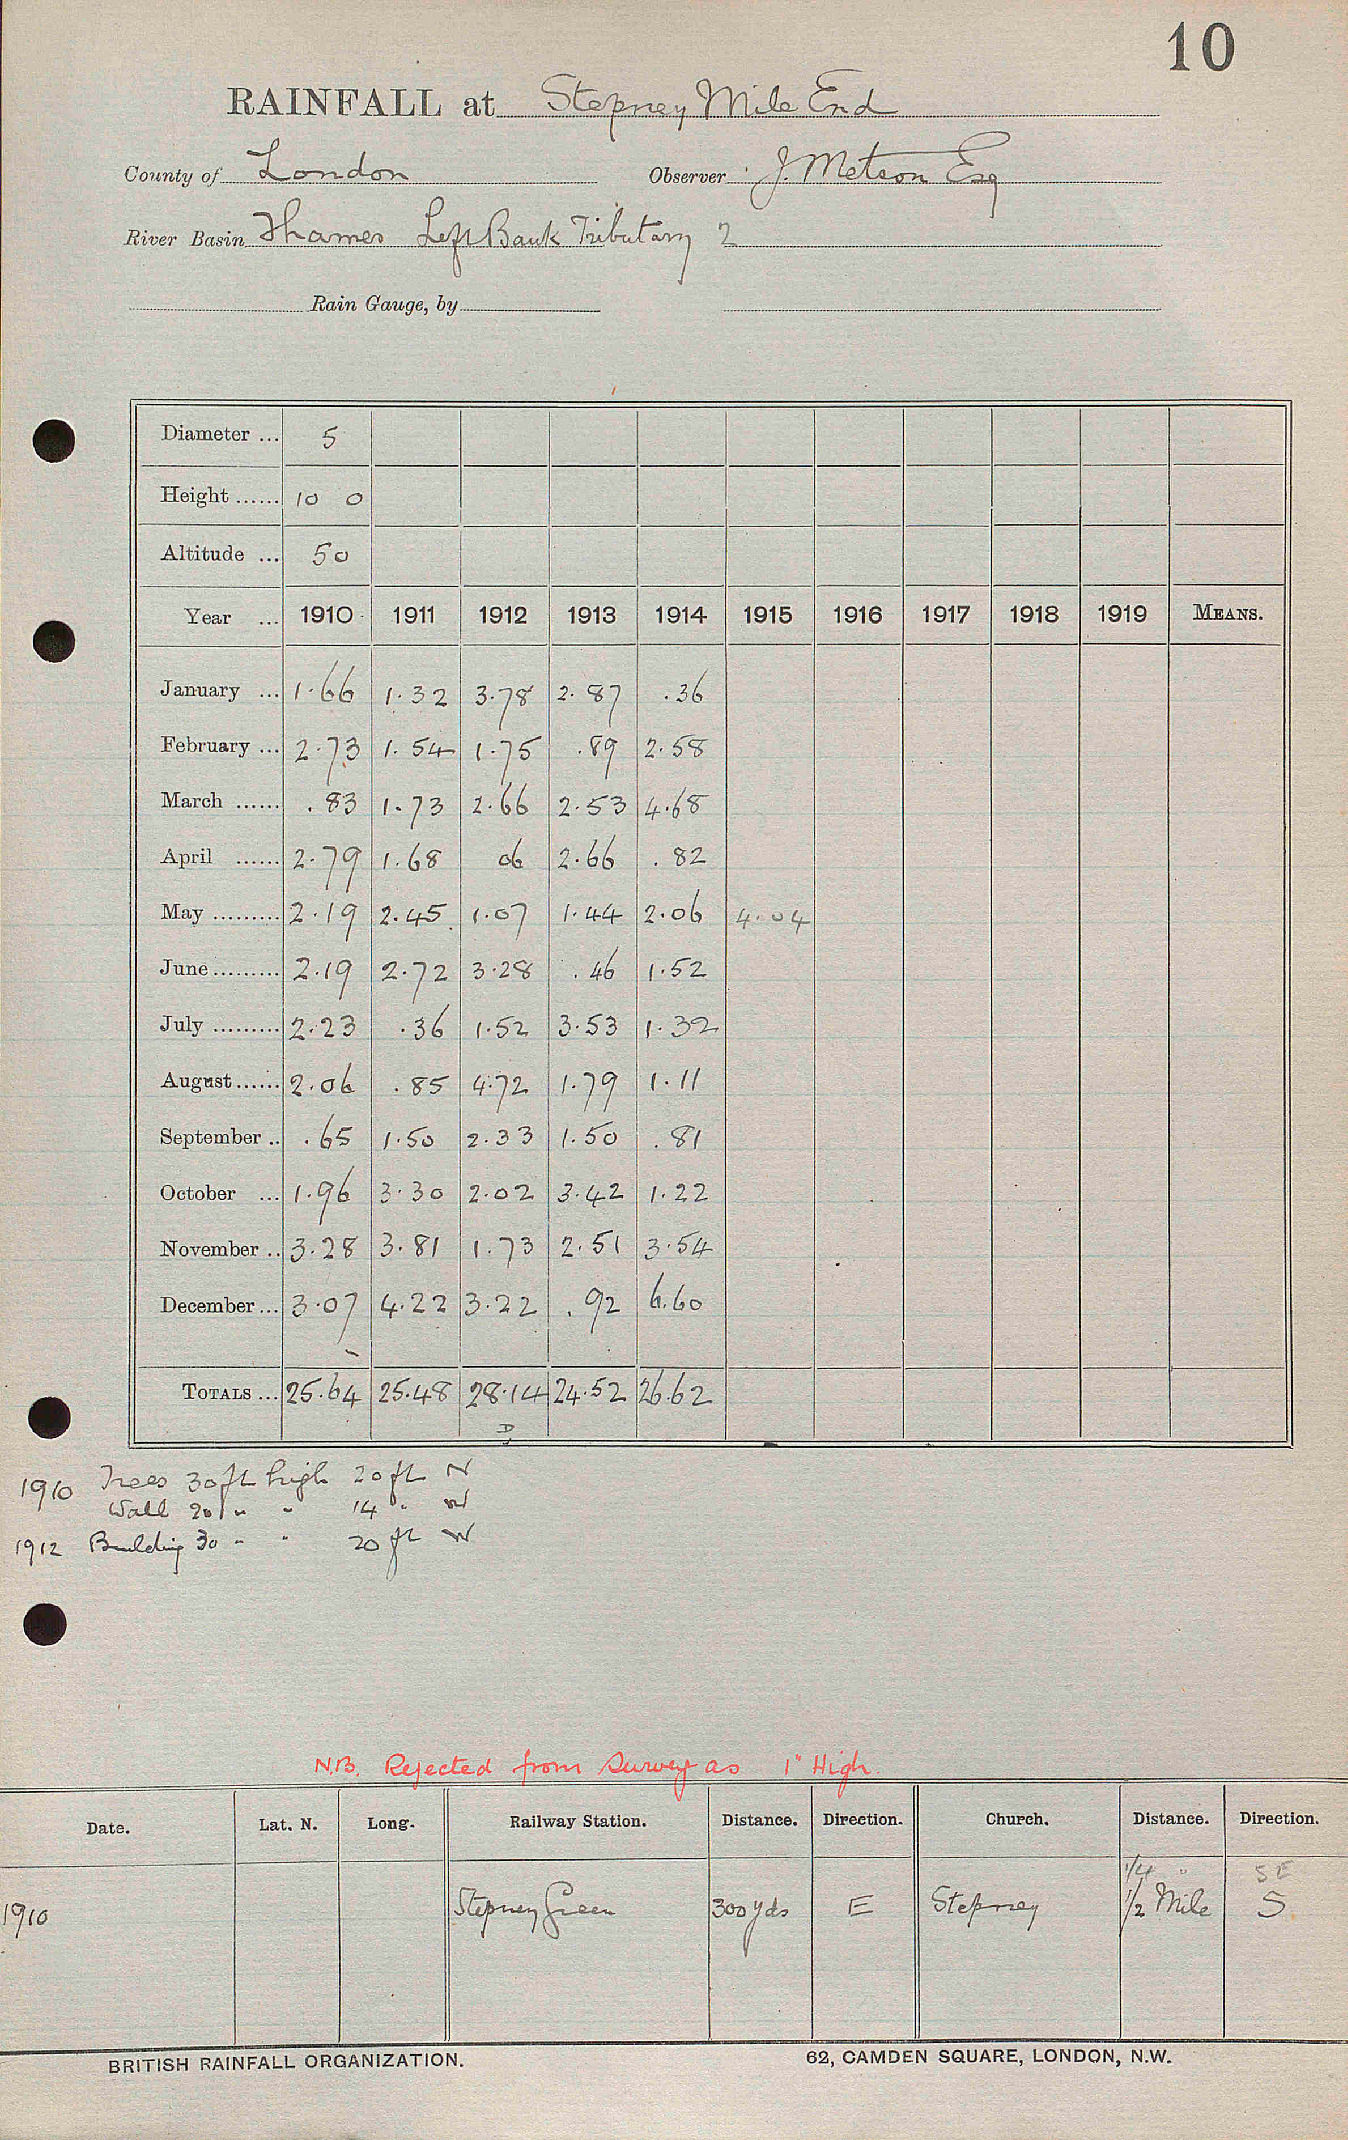 10
RAINFALL at Stepney Mile End
County of London Observer J. Metson Esq
River Basin Thames Left Bank Tributary 2
Rain Gauge, by
Diameter ... 5
Height ...... 10 0
Altitude ... 50
Year ... 1910 1911 1912 1913 1914 1915 1916 1917 1918 1919 MEANS.
January ... 1.66 1.32 3.78 2.87 .36
February ... 2.73 1.54 1.75 .89 2.58
March ...... .83 1.73 2.66 2.53 4.68
April ...... 2.79 1.68 06 2.66 .82
May ......... 2.19 2.45 1.07 1.44 2.06 4.04
June ......... 2.19 2.72 3.28 .46 1.52
July ......... 2.23 .36 1.52 3.53 1.32
August ...... 2.06 .85 4.72 1.79 1.11
September .. .65 1.50 2.33 1.50 .81
October ... 1.96 3.30 2.02 3.42 1.22
November .. 3.28 3.81 1.73 2.51 3.54
December ... 3.07 4.22 3.22 .92 6.60
TOTALS ... 25.64 25.48 28.14 24.52 26.62
D
1910 Trees 30ft high 20ft N
Wall 20 " " 14 " W
1912 Building 30 " " 20 ft W
N.B. Rejected from Survey as 1" High.
Date. Lat. N. Long. Railway Station. Distance. Direction. Church. Distance. Direction.
1/4 " SE
1910 Stepney Green 300 yds E Stepney 1/2 Mile S
BRITISH RAINFALL ORGANIZATION. 62, CAMDEN SQUARE, LONDON, N.W.